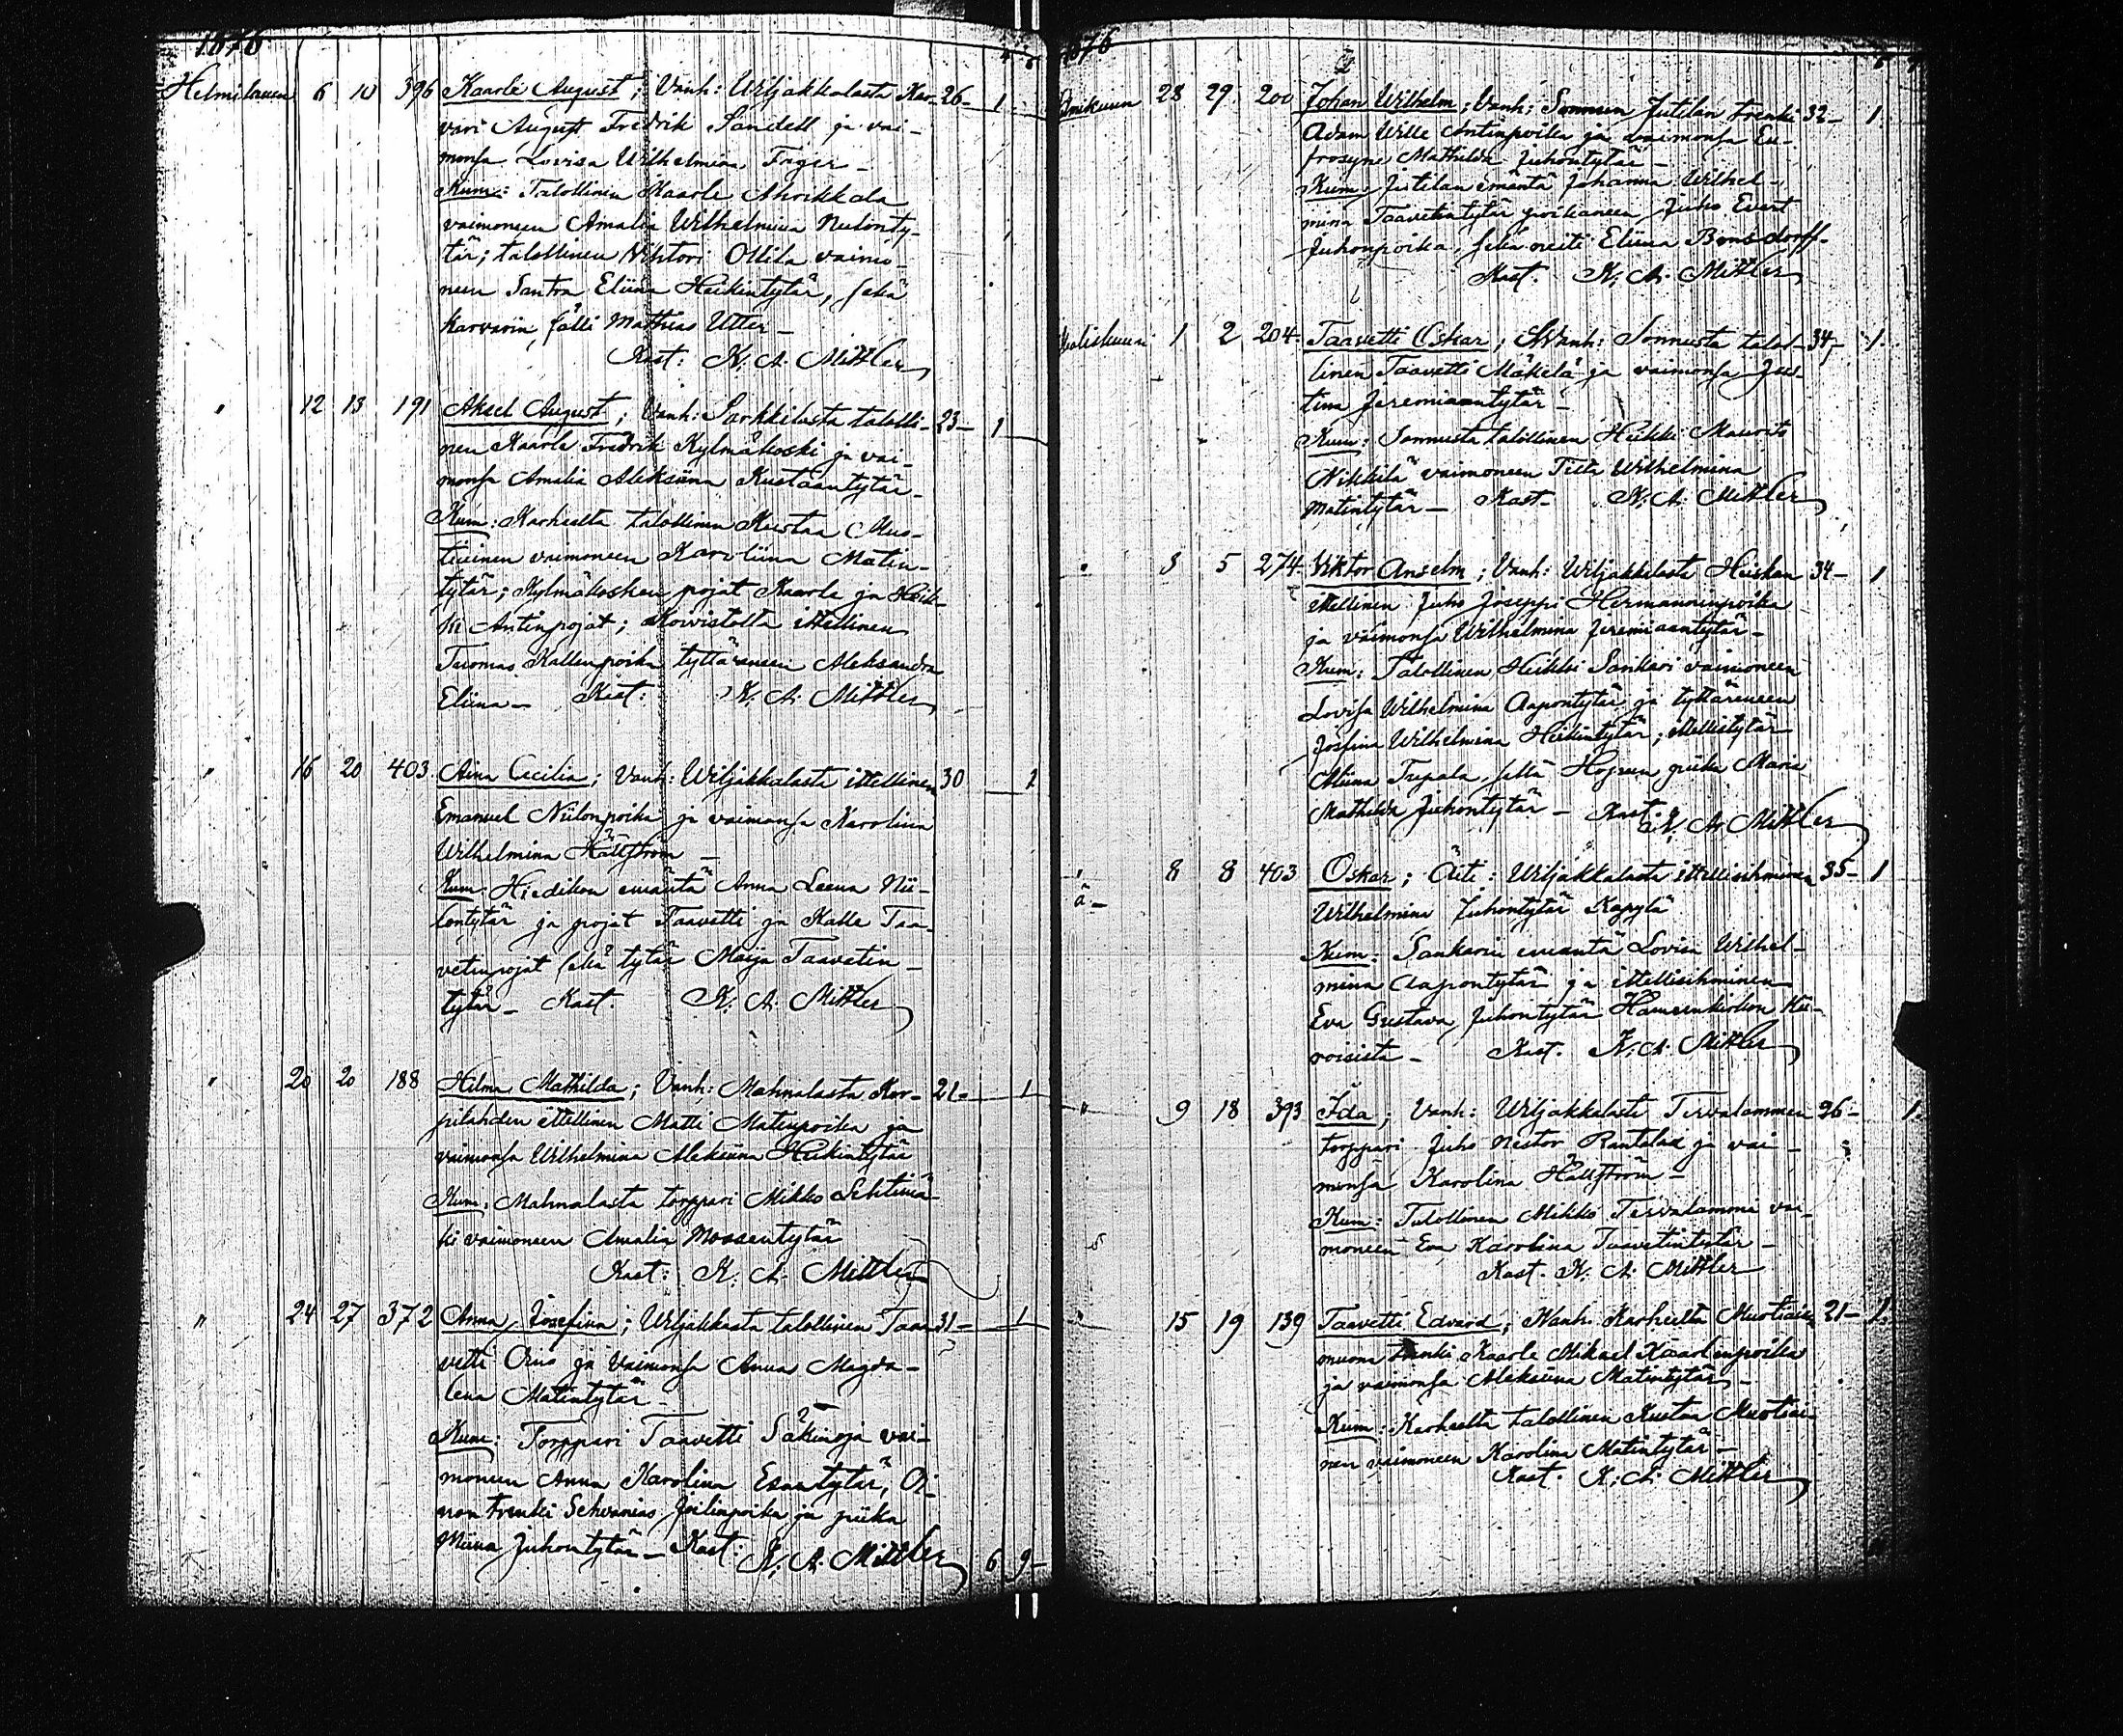 1876
Helmikuun 6 10 396 Kaarle August; Vanh: Wiljakkalasta Kar- 26- 1
vari August Fredrik Sandell ja vai-
monsa Lovisa Wilhelmina Fager-
Kum: Talollinen Kaarle
vaimoneen Amalia Wilhelmina
tär; talollinen Viktori Ollila vaimo-
neen Santra Eliina Heikintytär, sekä
karvarin sälli Mathias Utter-
Kast: K. A. Mittler
" 12 13 191 Aksel August; Vanh: Sarkkilasta talolli- 23- 1
nen Kaarle Fredrik Kylmäkoski ja vai-
monsa Amalia Aleksiina Kustaantytär-
Kum: Karheelta talollinen Kustaa Mus-
tiainen vaimoneen Karoliina Matin-
tytär; Kylmäkosken pojat Kaarle ja Heik-
ki Antinpojat; Koivistolta ittellinen
Tuomas Kallenpoika tyttäreneen Aleksandra
Eliina- Kast: K. A. Mittler
" 16 20 403 Aina Cecilia; Vanh: Wiljakkalasta ittellinen 30 1
Emanuel Niilonpoika ja vaimonsa Karolina
Wilhelmina Hällström-
Kum: Hiedikon emäntä Anna Leena Nii-
lontytär ja pojat Taavetti ja Kalle Taa-
vetinpojat sekä tytär Maija Taavetin-
tytär- Kast. K. A. Mittler
" 20 20 188 Hilma Mathilda; Vanh: Mahnalasta Kar- 21- 1
pilahden ittellinen Matti Matinpoika ja
vaimonsa Wilhelmina Aleksiina Heikintytär
Kum: Mahnalasta torppari Mikko Lehtimä-
ki vaimoneen Amalia Moosentytär
Kast: K. A. Mittler
" 24 27 372 Anna Josefina; Wiljakkasta talollinen Taa- 31- 1
vetti ja vaimonsa Anna Magda-
lena Matintytär-
Kum: Torppari Taavetti Säkinoja vai-
moneen Anna Karolina Esantytär,
renki ja piika
Miina Juhontytär- Kast: K. A. Mittler 6 9-
1876
28 29 200 Johan Wilhelm; Vanh: Sonnun Jutilan trenki 32- 1
Adam Wille Antinpoika ja vaimonsa Eu-
frosyne Mathilda Juhontytär-
Kum: Jutilan emäntä Johanna Wilhel-
mina Taavetintytär poikaneen Juho Evert
Juhonpoika, sekä neiti Eliina Bonsdorff-
Kast. K. A. Mittler
Maaliskuun 1 2 204 Taavetti Oskar; Vanh: Sonnusta talol- 34- 1
linen Taavetti Mäkelä ja vaimonsa Jus-
tina Jeremiaantytär-
Kum: Sonnusta talollinen Heikki Maurits
Nikkilä vaimoneen Wilhelmina
Matintytär- Kast- K. A. Mittler
" 3 5 274 Viktor Anselm; Vanh: Wiljakkalasta 34- 1
ittellinen Juho Joseppi Hermanninpoika
ja vaimonsa Wilhelmina Jeremiaantytär-
Kum: Talollinen Heikki Sankari vaimoneen
Lovisa Wilhelmina Aapontytär ja tyttäreneen
Josfina Wilhelmina Heikintytär;
Miina sekä piika Maria
Mathilda Juhontytär- Kast. K. A. Mittler
" 8 8 403 Oskar; Äiti: Wiljakkalasta ittellisihminen 35- 1
ä-
Wilhelmina Juhontytär Kapylä
Kum: Sankarin emäntä Lovisa Wilhel-
mina Aapontytär ja ittellisihminen
Eva Gustava Juhontytär Hämeenkirkon
Kast. K. A. Mittler
" 9 18 393 Ida; Vanh: Wiljakkalasta Tervalammen 26- 1
torppari Juho Nestor Rantala ja vai-
monsa Karolina Hällström-
Kum: Talollinen Mikko Tervalammi vai-
moneen Eva Karolina Taavetintytär-
Kast. K. A. Mittler
" 15 19 139 Taavetti Edvard; Vanh: Karheelta 21- 1
Kaarle Mikael Kaarlenpoika
ja vaimonsa Aleksiina Matintytär-
Kum: Karheelta talollinen Kustaa Mustiai-
nen vaimoneen Karolina Matintytär-
Kast. K. A. Mittler